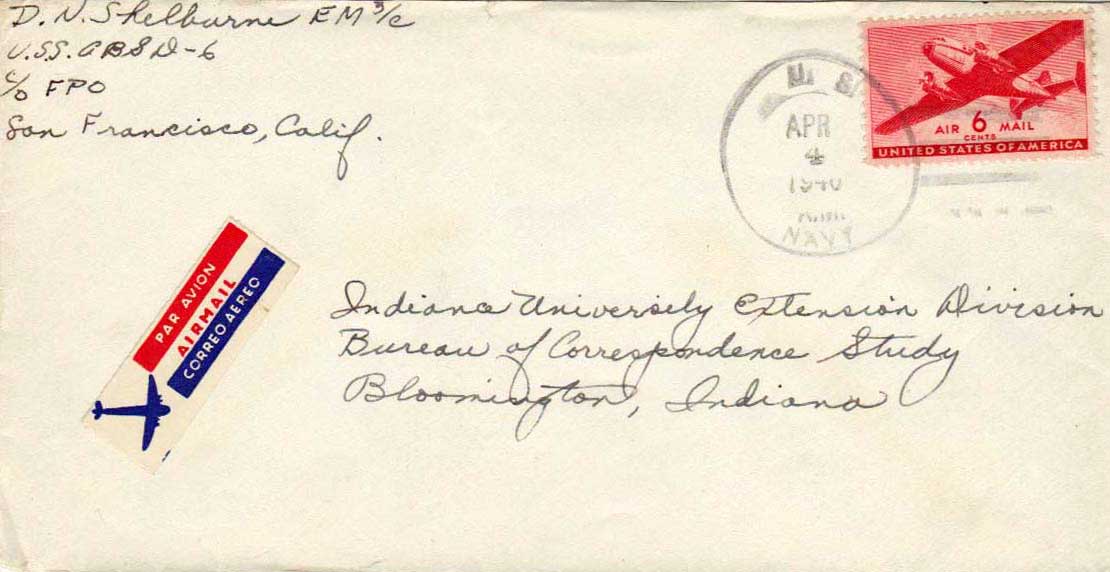 D. N. Shelburne EM 3/c
U.S.S. ABSD-6
c/o FPO
San Francisco, Calif.
U. S.
APR
4
1946
NAVY
AIR 6 MAIL
CENTS
UNITED STATES OF AMERICA
PAR AVION
AIRMAIL
CORREO AEREO
Indiana University Extension Division
Bureau of Correspondence Study
Bloomington, Indiana